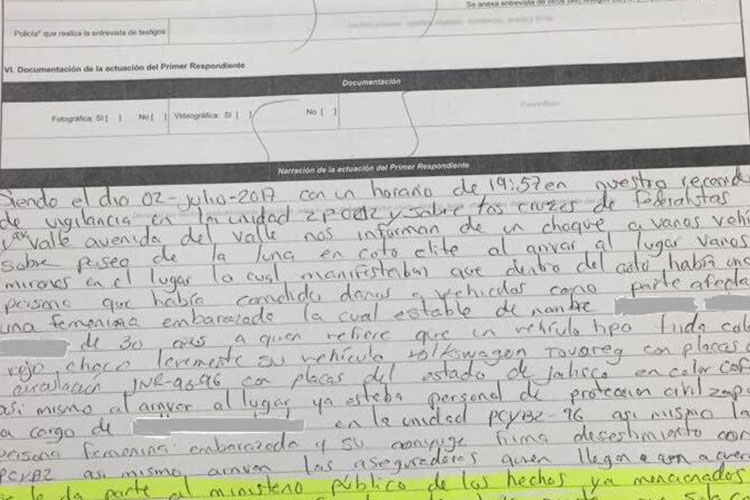 Se anexa entrevista de
Policía* que realiza la entrevista de testigos
VI. Documentación de la actuación del Primer Respondiente
Documentación
Fotográfica: Si [ ] No [ ] Videográfica: Si [ ] No [ ]
Narración de la actuación del Primer Respondiente
Siendo el dia 02-Julio-2017 con un horario de 19:57 en nuestro recorrido
de vigilancia en la unidad y sobre los cruzes de federalistas
y av valle avenida del valle nos informan de un choque a varios vehi
sobre paseo de la luna en coto elite al arivar al lugar varios
mirones en el lugar lo cual manifestaban que dentro del coto había una
persona que habia cometido danos a vehiculos como parte afecta
una femenina embarazada la cual estable de nombre
de 30 años a quien refiere que un vehículo tipo tuda color
rojo, choco levemente su vehículo Volkswagen Touareg con placas d
circulacion JNR-9696 con placas del estado de Jalisco en color caf
asi mismo al arriver al lugar ya estaba personal de proteccion civil zap
a cargo de en la unidad PCYB2-96 asi mismo la
persona femenina embarazada y su conyuge firma desestimiento con
PCYB2 asi mismo arivan las aseguradores quien llegan a un acuerd
se le da parte al ministerio público de los hechos ya mencionados